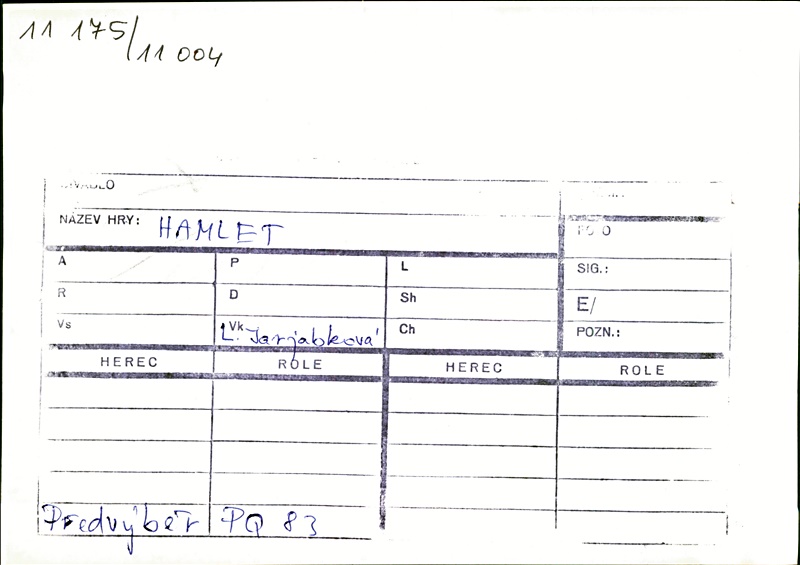 11 175/11 004
DIVADLO
NÁZEV HRY: HAMLET
FOTO
A P L SIG.:
R D Sh E/
Vs Vk L. Jarjabková Ch POZN.:
HEREC ROLE HEREC ROLE
Předvýběr PQ 83